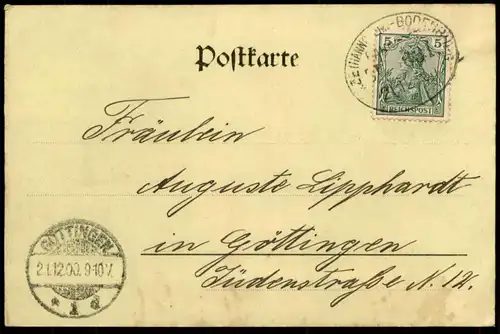 Postkarte
5 5
REICHSPOST
Fräulein
Auguste Lipphardt
in Göttingen
Jüdenstraße N. 12.
GÖTTINGEN
21.12.00. 9-10V.
* 1 d